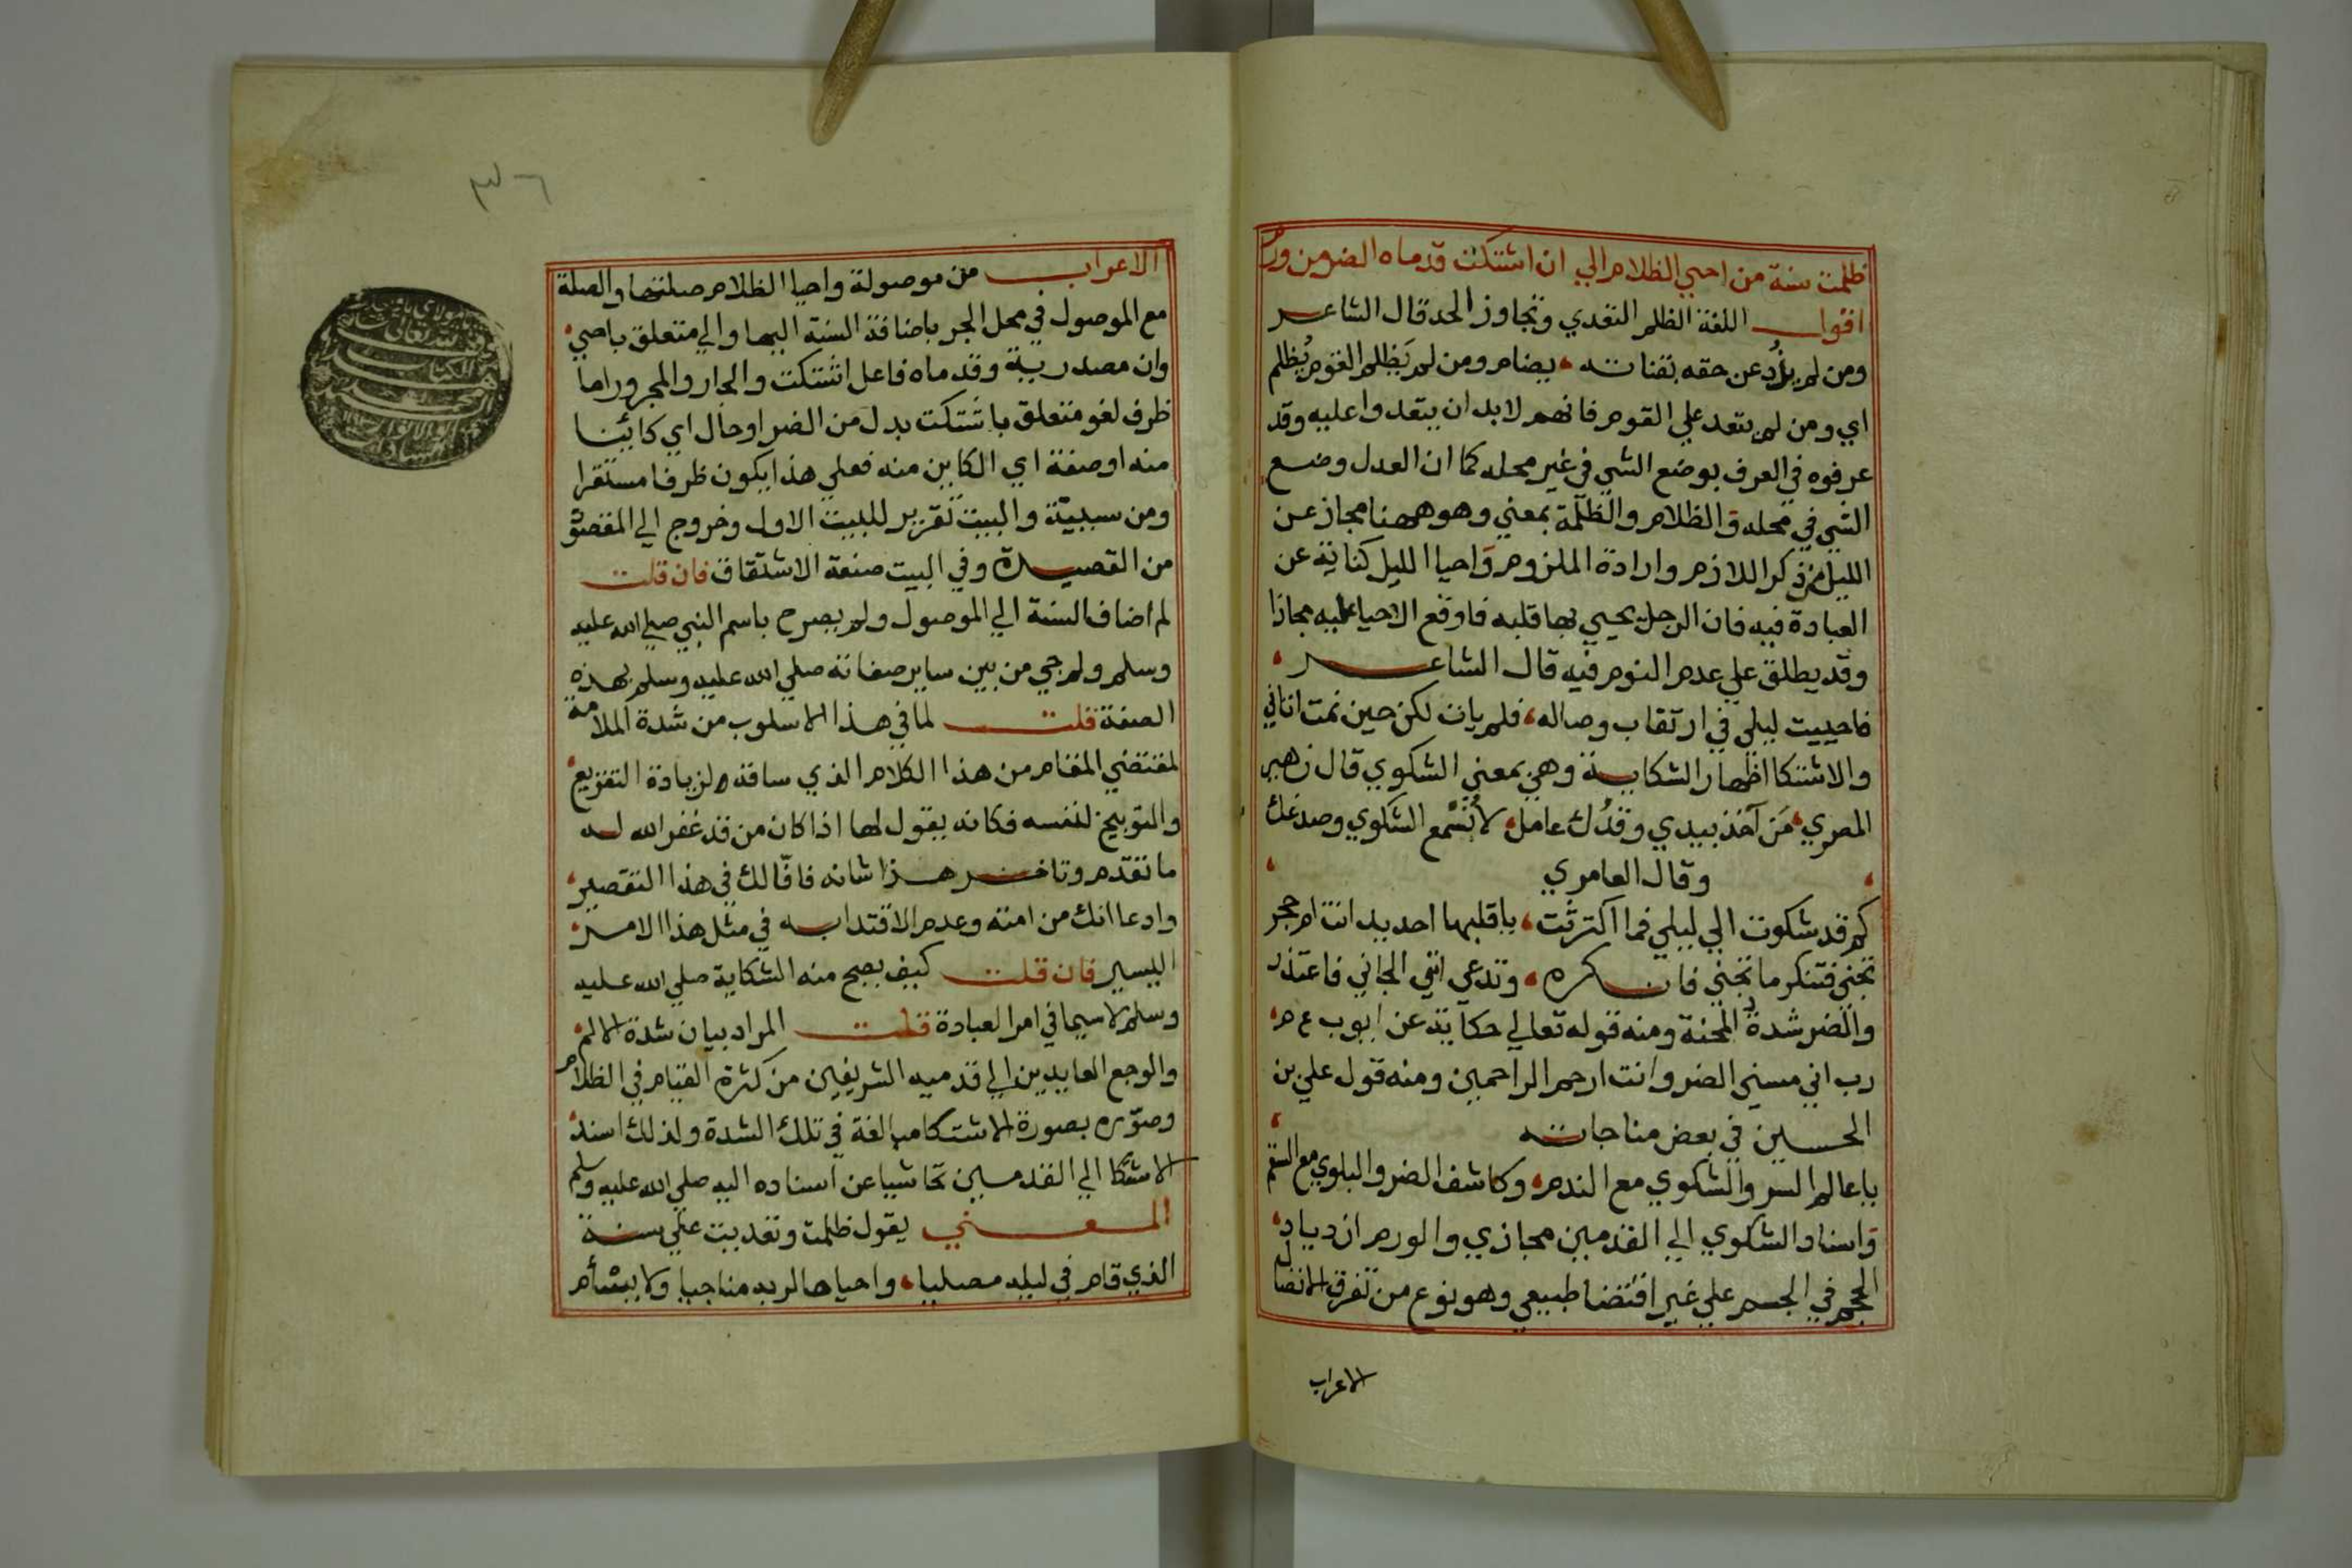 ظلمت سنة من احيي الظلام الي ان اشتكت قدماه الضر من ورم
اقول اللغة الظلم التعدي وتجاوز الحد قال الشاعر
ومن لم يذُد عن حقه بقناته يضام ومن لم يَظلم القوم يُظلم
اي ومن لم يتعد علي القوم فانهم لا بد ان يتعدوا عليه وقد
عرفوه في العرف بوضع الشي في غير محله كما ان العدل وضع
الشي في محله والظلام والظلمة بمعني وهو ههنا مجاز عن
الليل من ذكر اللازم وارادة الملزوم واحيا الليل كناية عن
العبادة فيه فان الرجل يحيي بها قلبه فاوقع الاحيا عليه مجازا
وقد يطلق علي عدم النوم فيه قال الشاعر
فاحييت ليلي في ارتقاب وصاله فلم يات لكن حين نمت اتاني
والاشتكا اظهار الشكاية وهي بمعني الشكوي قال زهير
المصري مَن آخذ بيدي وقدُك عامل لا تُسْمع الشكوي وصدغك
وقال العامري
كم قد شكوت الي ليلي فما اكترثَت يا قلبها احديد انت ام حجر
تجني فتنكر ما تجني فان كره وتدعي انني الجاني فاعتذر
والضر شدةُ المحنة ومنه قوله تعالي حكاية عن ايوب ع م
رب اني مسني الضر وانت ارحم الراحمين ومنه قول علي بن
الحسين في بعض مناجاته
يا عالم السر والشكوي مع الندم وكاشف الضر والبلوي مع السقم
واسناد الشكوي الي القدمين مجازي والورم ازدياد
الحجم في الجسم علي غير اقتضا طبيعي وهو نوع من تفرق الاتصال
الاعراب
٣٧٦
الاعراب من موصولة واحيا الظلام صلتها والصلة
مع الموصول في محل الجر باضافة السنة اليها والي متعلق باحيي
وان مصدرية وقدماه فاعل اشتكت والجار والمجرور اما
ظرف لغو متعلق باشتكت بدل من الضر او حال اي كائنا
منه او صفة اي الكاين منه فعلي هذا يكون ظرفا مستقرا
ومن سببية والبيت تقرير للبيت الاول وخروج الي المقصود
من القصيدة وفي البيت صنعة الاشتقاق فان قلت
لم اضاف السنة الي الموصول ولم يصرح باسم النبي صلي الله عليه
وسلم ولم جي من بين ساير صفاته صلي الله عليه وسلم بهذه
الصفة قلت لما في هذا الاسلوب من شدة الملامة
لمقتضي المقام من هذا الكلام الذي ساقه لزيادة التقريع
والتوبيخ لنفسه فكانه يقول لها اذا كان من قد غفر الله له
ما تقدم وتاخر هذا شانه فافّا لك في هذا التقصير
وادعا انك من امته وعدم الاقتدا به في مثل هذا الامر
اليسير فان قلت كيف يصح منه الشكاية صلي الله عليه
وسلم لا سيما في امر العبادة قلت المراد بيان شدة الالم
والوجع العايدين الي قدميه الشريفين من كثرة القيام في الظلام
وصوّره بصورة الاشتكا مبالغة في تلك الشدة ولذلك اسند
الاشتكا الي القدمين تحاشيا عن اسناده اليه صلي الله عليه وسلم
المعني يقول ظلمت وتعديت علي سنة
الذي قام في ليله مصليا واحياها لربه مناجيا ولا يسأم